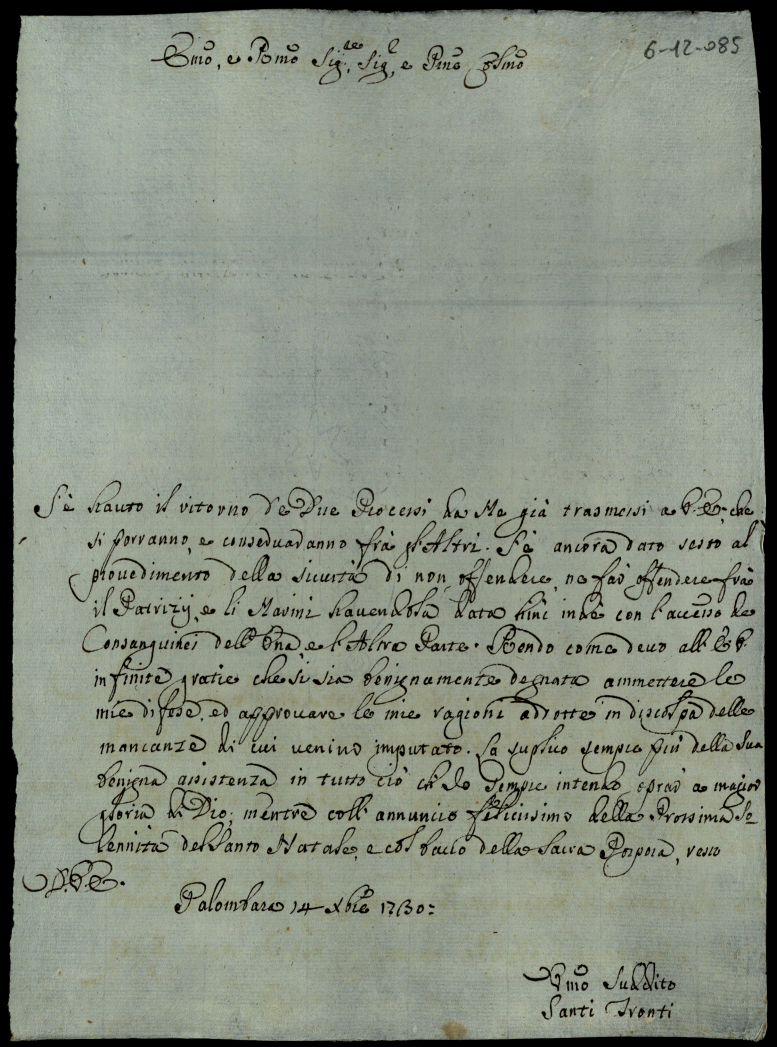 6-12-085
Emo, e Rmo Sig.re, Sig.r, e Pne Colmo
S'è hauto il ritorno de Due Processi da Me già trasmessi a V. E., che
si porranno, e conservaranno frà gl'Altri. S'è ancora dato sesto al
provedimento della sicurtà di non offendere, ne far offendere frà
il Patrizij, e li Marini havendola data hinc inde con l'accesso de
Consanguinei dell'Una, e l'Altra Parte. Rendo come devo all' E. V.
infinite gratie che si sia benignamente degnata ammettere le
mie difese, ed approvare le mie ragioni addotte in discolpa delle
mancanze di cui venivo imputato. La suplico sempre più della sua
benigna assistenza in tutto ciò ch'Io sempre intendo oprar a magior
gloria di Dio; mentre coll'annuncio felicissimo della Prossima So-
lennità del Santo Natale, e col bacio della Sacra Porpora, resto
D. V. E.
Palombara 14 Xbre 1730:
Vmo Suddito
Santi Tronti